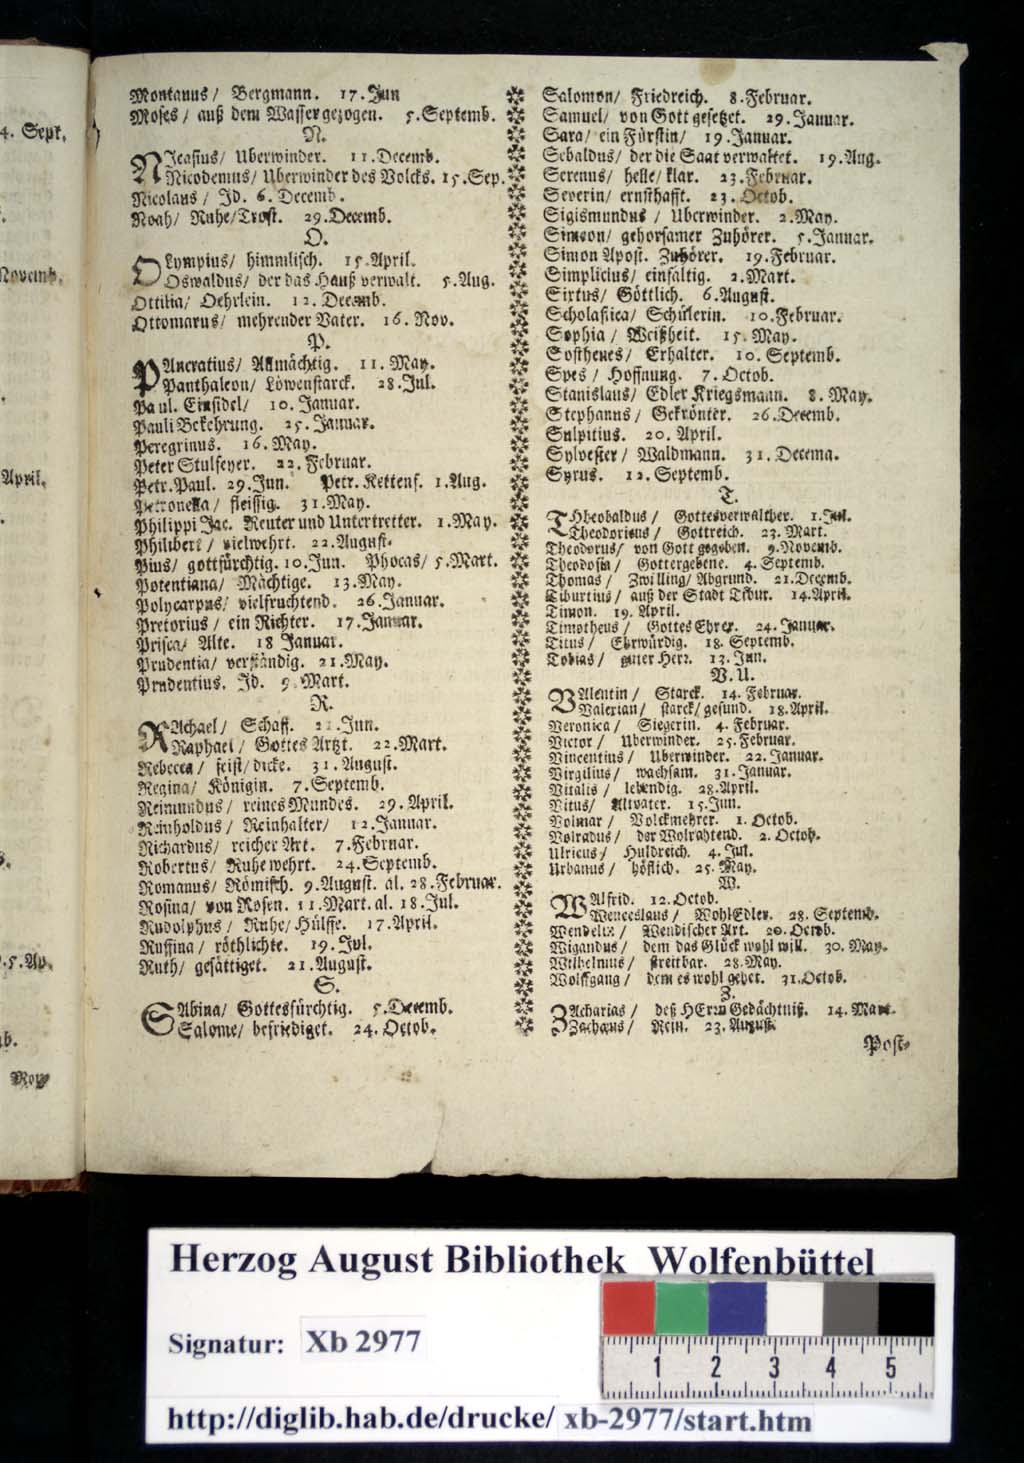 Montanus/ Bergmann. 17. Jun
Moses/ auß dem Wasser gezogen. 5. Septemb.
N.
NIcasius/ Uberwinder. 11. Decemb.
Nicodemus/ Uberwinder des Volcks. 15. Sep.
Nicolaus/ Id. 6. Decemb.
Noah/ Ruhe/Trost. 29. Decemb.
O.
OLympius/ himmlisch. 15. April.
Oswaldus/ der das Hauß verwalt. 5. Aug.
Ottilia/ Oehrlein. 12. Decemb.
Ottomarus/ mehrender Vater. 16. Nov.
P.
PAncratius/ Allmächtig. 11. May.
Panthaleon/ Löwenstarck. 28. Jul.
Paul. Einsidel/ 10. Januar.
Pauli Bekehrung. 25. Januar.
Peregrinus. 16. May.
Peter Stulfeyer. 22. Februar.
Petr. Paul. 29. Jun. Petr. Kettenf. 1. Aug.
Petronella/ fleissig. 31. May.
Philippi Jac. Reuter und Untertretter. 1. May.
Philibert/ vielwehrt. 22. August.
Pius/ gottfürchtig. 10. Jun. Phocas/ 5. Mart.
Potentiana/ Mächtige. 13. May.
Polycarpus/ vielfruchtend. 26. Januar.
Pretorius/ ein Richter. 17. Januar.
Prisca/ Alte. 18 Januar.
Prudentia/ verständig. 21. May.
Prudentius. Id. 9. Mart.
R.
RAchael/ Schaff. Jun.
Raphael/ Gottes Artzt. 22. Mart.
Rebecca/ feist/ dicke. 31. August.
Regina/ Königin. 7. Septemb.
Reimundus/ reines Mundes. 29. April.
Reinholdus/ Reinhalter/ 12. Januar.
Richardus/ reicher Art. 7. Februar.
Robertus/ Ruhe wehrt. 24. Septemb.
Romanus/ Römisch. 9. August. al. 28. Februar.
Rosina/ von Rosen. 11. Mart. al. 18. Jul.
Rudolphus/ Ruhe/ Hülffe. 17. April.
Ruffina/ röthlichte. 19. Jul.
Ruth/ gesättiget. 21. August.
S.
SAbina/ Gottesfürchtig. 5. Decemb.
Salome/ befriediget. 24. Octob.
Salomon/ Friedreich. 8. Februar.
Samuel/ von Gott gesetzet. 29. Januar.
Sara/ ein Fürstin/ 19. Januar.
Sebaldus/ der die Saat verwaltet. 19. Aug.
Serenus/ helle/ klar. 23. Februar.
Severin/ ernsthafft. 23. Octob.
Sigismundus/ Uberwinder. 2. May.
Simeon/ gehorsamer Zuhörer. 5. Januar.
Simon Apost. Zuhörer. 19. Februar.
Simplicius/ einfältig. 2. Mart.
Sixtus/ Göttlich. 6. August.
Scholastica/ Schülerin. 10. Februar.
Sophia/ Weißheit. 15. May.
Sosthenes/ Erhalter. 10. Septemb.
Spes/ Hoffnung. 7. Octob.
Stanislaus/ Edler Kriegsmann. 8. May.
Stephanus/ Gekrönter. 26. Decemb.
Sulpitius. 20. April.
Sylvester/ Waldmann. 31. Decema.
Syrus. 12. Septemb.
T.
THbeobaldus/ Gottesverwalther. 1. Jul.
Theodoricus/ Gottreich. 23. Mart.
Theodorus/ von Gott gegeben. 9. Novemb.
Theodosia/ Gottergebene. 4. Septemb.
Thomas/ Zwilling/ Abgrund. 21. Decemb.
Tiburtius/ auß der Stadt Tibur. 14. April.
Timon. 19. April.
Timotheus/ Gottes Ehrer. 24. Januar.
Titus/ Ehrwürdig. 18. Septemb.
Tobias/ guter Herr. 13. Jun.
V. U.
VAlentin/ Starck. 14. Februar.
Valerian/ starck/ gesund. 18. April.
Veronica/ Siegerin. 4. Februar.
Victor/ Uberwinder. 25. Februar.
Vincentius/ Uberwinder. 22. Januar.
Virgilius/ wachsam. 31. Januar.
Vitalis/ lebendig. 28. April.
Vitus/ Altvater. 15. Jun.
Volmar/ Volckmehrer. 1. Octob.
Volradus/ der Wolrahtend. 2. Octob.
Ulricus/ Huldreich. 4. Jul.
Urbanus/ höflich. 25. May.
W.
WAlfrid. 12. Octob.
Wenceslaus/ WohlEdler. 28. Septemb.
Wendelin/ Wendischer Art. 20. Octob.
Wigandus/ dem das Glück wohl will. 30. May.
Wilhelmus/ streitbar. 28. May.
Wolffgang/ dem es wohl gehet. 31. Octob.
Z.
ZAcharias/ deß HErrn Gedächtniß. 14. Mart.
Zachæus/ Rein. 23. August.
Post-
4. Sept.
Novemb.
April.
5. Ap.
Mon-
Herzog August Bibliothek Wolfenbüttel
Signatur: Xb 2977
1 2 3 4 5
http://diglib.hab.de/drucke/ xb-2977/start.htm